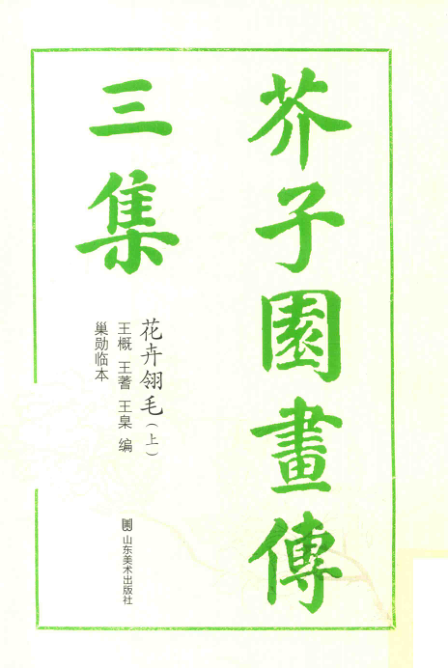 芥子園畫傳
三集
花卉翎毛（上）
王概 王蓍 王臬 编
巢勋临本
山东美术出版社